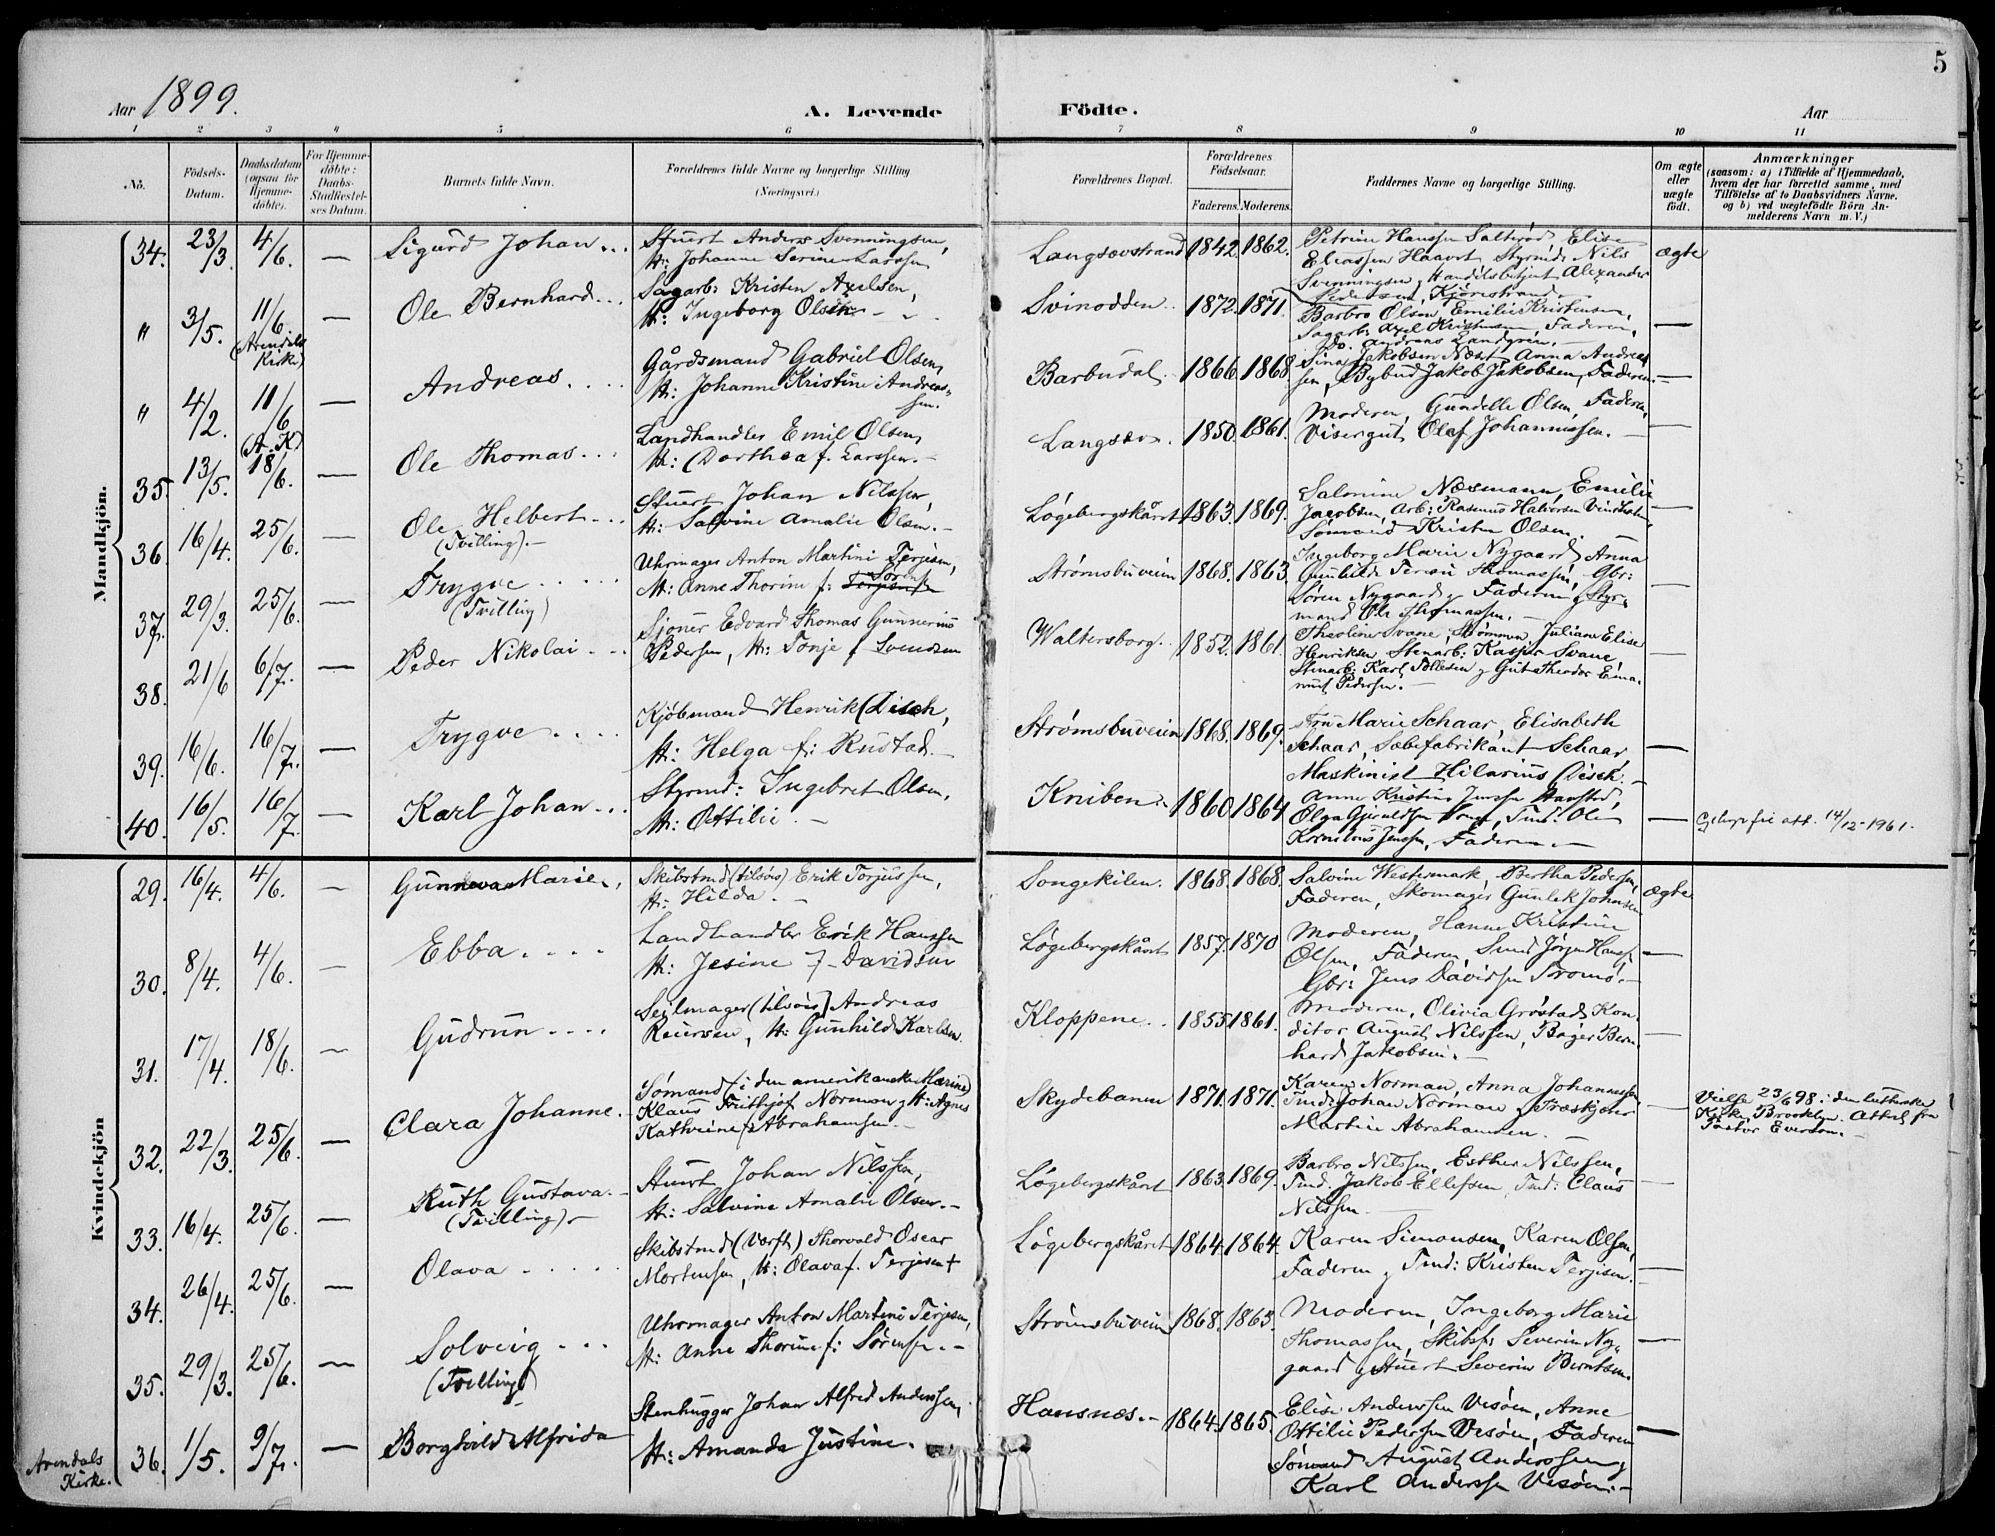 5
Aar 1899.
A. Levende Födte.
Aar
1 2 3 4 5 6 7 8 9 10 11
No.
Födsels-Datum.
Daabsdatum (ogsaa for Hjemme-döbte).
For Hjemme-döbte: Daabs-Stadfæstel-ses Datum.
Barnets fulde Navn.
Forældrenes fulde Navne og borgerlige Stilling (Næringsvei.)
Forældrenes Bopæl.
Forældrenes Födselsaar.
Faderens. Moderens.
Faddernes Navne og borgerlige Stilling.
Om ægte eller uægte födt.
Anmærkninger
(saasom: a) i Tilfælde af Hjemmedaab,
hvem der har forrettet samme, med
Tilföielse af to Daabsvidners Navne.
og b) ved uægtefödte Börn An-
melderens Navn m. V.)
Mandkjön.
34. 23/3. 4/6. — Sigurd Johan...
Stuert Anders Svenningsen,
H: Johanne Serine Larssen
Langsævstrand 1842. 1862.
Petrine Hanssen Salterød, Elise
Eliassen Haavet, Styrmd: Nils
Svenningsen, Handelsbetjent Alexander
Pedersen, Kjörestrand
ægte
" 3/5. 11/6 (Arendals Kirke) — Ole Bernhard...
Sagarb: Kristen Axelsen,
H: Ingeborg Olsen
Svinodden. 1872. 1871.
Barbro Olsen, Emilie Kristensen,
Sagarb: Axel Kristensen, Faderen,
do. Andreas Landgren. —
" 4/2. 11/6 (A.K) — Andreas....
Gårdsmand Gabriel Olsen,
H: Johanne Kristine Andreas-
sen.
Barbudal. 1866. 1868.
Sina Jakobsen Næset, Anna Andreas
sen, Bybud Jakob Jakobsen, Faderen. —
35. 13/5. 18/6. — Ole Thomas...
Landhandler Emil Olsen,
H: Dorthea f. Larssen. —
Langsæv. 1850. 1861.
Moderen, Gundelle Olsen, Faderen,
Visergut Olaf Johannessen. —
36. 16/4. 25/6. — Ole Helbert...
(Tvilling). —
Stuert Johan Nilssen,
H: Salvine Amalie Olsen. —
Løgebergskåret 1863. 1869.
Salomine Næsmann, Emilie
Jacobsen, Arb: Rasmus Halvorsen
Sømand Kristen Olsen.
37. 29/3. 25/6. — Trygve.....
(Tvilling)
Uhrmager Anton Martini Terjesen,
H: Anne Thorine f: Sørensen
Strømsbuveien 1868. 1863.
Ingeborg Marie Nygaard, Anna
Gunhilde Teresie Thomassen, Gbr:
Søren Nygaard, Faderen, Styr-
mand Ole Thomassen. —
38. 21/6 6/7. — Peder Nikolai...
Sjömer Edvard Thomas Gunnerius
Pedersen, H: Tonje f. Svendsen
Waltersborg. 1852. 1861.
Theoline Svane, Strømmen, Juliane Elise
Henriksen, Stenarb: Kasper Svane,
Stenarb: Karl Tollesen, Gut: Theodor Ema-
nuel Pedersen. —
39. 16/6. 16/7. — Trygve....
Kjöbmand Henrik Disch,
H: Helga f: Rustad. —
Strømsbuveien 1868. 1869.
Fru Marie Schaar, Elisabeth
Schaar, Sæbefabrikant Schaar,
Maskinist Hilarius Disch. —
40. 16/5. 16/7. — Karl Johan...
Styrmd: Ingebret Olsen,
H: Ottilie. —
Kniben. 1860. 1864
Anne Kristine Jenssen
Olga Gjeruldsen, Tmd: Ole
Kornelius Jenssen, Faderen. —
att. 14/12-1961.
Kvindekjön
29. 16/4. 4/6. — Gunneva Marie,
Skibstmd (tilsøes) Erik Torjussen,
H: Hilda. —
Songekilen. 1868. 1868.
Salvine Westermark, Bertha Pedersen,
Faderen, Skomager Gunlek Johnsen
ægte
30. 8/4. 4/6. — Ebba....
Landhandler Erik Hanssen
H: Jesine f. Davidsen
Løgebergskåret 1857. 1870
Moderen, Hanne Kristine
Olsen, Faderen, Smed Jörgen Hanss.
Gbr: Jens Davidsen Tromö. —
31. 17/4. 18/6. — Gudrun....
Seilmager (tilsøes) Andreas
Reiersen, H: Gunhild Karlsen.
Kloppene.. 1855. 1861.
Moderen, Olivia Grøstad, Kon-
ditor August Nilssen, Bager Bern-
hard Jakobsen. —
32. 22/3. 25/6. — Clara Johanne.
Sømand (i den amerikanske Marine)
Klaus Frithjof Norman, H: Agnes
Kathrine f. Abrahamsen. —
Skydebanen 1871. 1871.
Karen Norman, Anna Johannessen
Tmd: Johan Norman, Træskjærer
Martin Abrahamsen. —
Vielse 23/6 98. i den lutherske
Kirke Brooklyn. Attest fra
Pastor Everson. —
33. 16/4. 25/6. — Ruth Gustava. —
(Tvilling) —
Stuert Johan Nilssen,
H: Salvine Amalie Olsen. —
Løgebergskåret 1863. 1869.
Barbro Nilssen, Esther Nilssen,
Tmd: Jakob Ellefsen, Tmd: Claus
Nilssen. —
34. 26/4. 25/6. — Olava.....
Skibstmd (Værft) Thorvald Oscar
Mortensen, H: Olava f. Terjesen
Løgebergskåret 1864. 1864.
Karen Simonsen, Karen Olsen,
Faderen, Tmd: Kristen Terjesen. —
35. 29/3. 25/6. — Solveig...
(Tvilling)
Uhrmager Anton Martini Terjesen,
H: Anne Thorine f: Sørensen. —
Strømsbuveien 1868. 1863.
Moderen, Ingeborg Marie
Thomassen, Skibsf: Severin Ny-
gaard, Stuert Severin Berntsen.
Arendals Kirke.
36. 1/5. 9/7. — Borghild Alfrida
Stenhugger Johan Alfred Anderssen,
H: Amanda Justine.
Hansnæs. — 1864. 1865.
Elise Anderssen Vesøen, Anne
Ottilie Pedersen Vesøen, Faderen
Sømand August Anderssen,
Karl Anderssen Vesøen. —